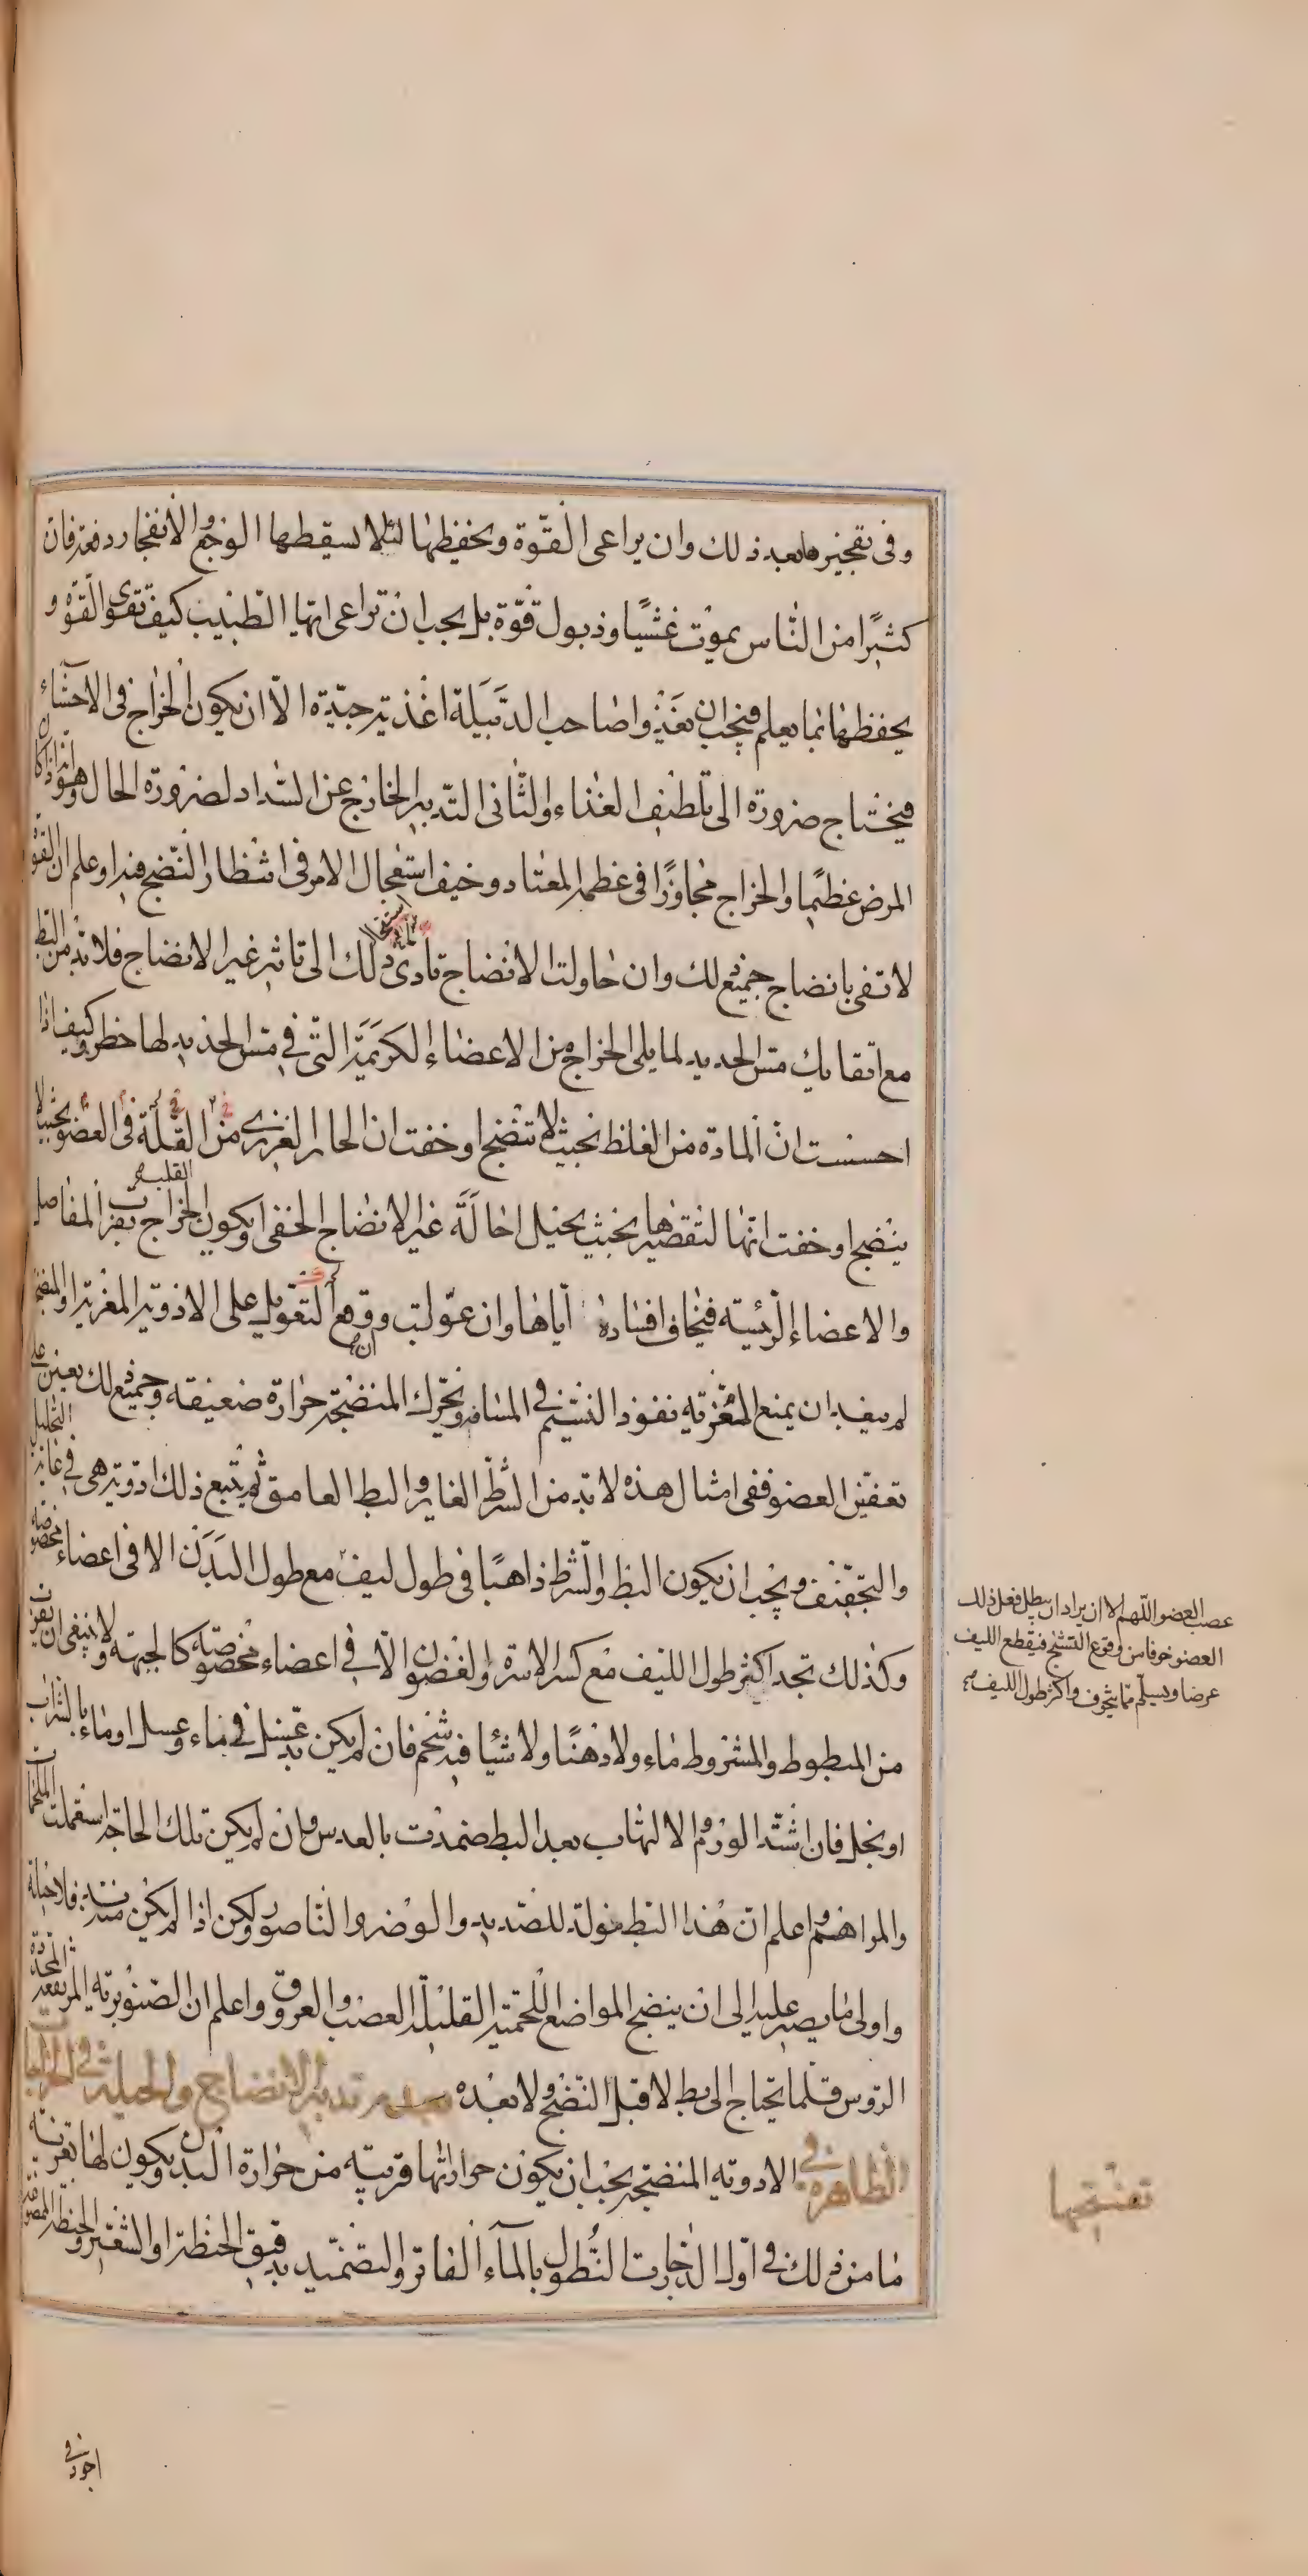 وفى تفجيره بعد ذلك وان يراعى القوة ويحفظها لئلا يسقطها الوجع والانفجار دفعة فان
كثيرا من الناس يموت غشيا وذبول قوة بل يجب ان تراعى ايها الطبيب كيف تقوى القوة و
يحفظها بما يعلم فيجب ان تغذوا صاحب الدبيلة اغذية جيدة الا ان يكون الخراج فى الاحشاء
فيحتاج ضرورة الى تلطيف الغذاء والثانى التدبير الخارج عن السداد لضرورة الحال وهو انه اذا كان
المرض عظيما والخراج مجاوزا فى عظمه المعتاد وخيف استعجال الامر فى انتظار النضج فيه او علم ان القوة
لا تفى بانضاج جميع ذلك وان حاولت الانضاج تادى ذلك الى تاثير غير الانضاج فلا بد من البط
مع اتقايك مس الحديد لما يلى الخراج من الاعضاء الكريمة التى فى مس الحديد لها خطر وكيف اذا
احسست ان المادة من الغلظ بحيث لا تنضج او خفت ان الحار الغريزى من القلة فى العضو بحيث لا
ينضج او خفت انها لتقصيرها بحيث يحيل احالة غير الانضاج الحقى او يكون الخراج بقرب المفاصل
القلبه
والاعضاء الرئيسة فيخاف افساده اياها وان عولت ووقع التعويل على الادوية المغرية او المنضجة
لم يفيد ان يمنع المغرية نفوذ النسيم فى المسام ويحرك المنضجة حرارة ضعيفة وجميع ذلك يعين على
تعفين العضو ففى امثال هذه لا بد من الشرط الغاير والبط العامق ثم يتبع ذلك ادوية هى فى غاية التحليل
والتجفيف ويجب ان يكون البط والشرط ذاهبا فى طول ليف مع طول البدن الا فى اعضاء مخصوصة
وكذلك تجد اكثر طول الليف مع كسر الاسرة والغضون الا فى اعضاء مخصوصة كالجبهة ولا ينبغى ان يقرب
من المبطوط والمشروط ماء ولا دهنا ولا شيا فيه شحم فان لم يكن بد غسل فى ماء وعسل او ماء بالشراب
او بخل فان اشتد الورم والالتهاب بعد البط ضمدت بالعدس وان لم يكن تلك الحاجة استعملت الملحمات
والمراهم واعلم ان هذا البط مولد للصديد والوضر والناصور ولكن اذا لم يكن منه بد فلا حيلة
واولى ما يصبر عليه الى ان ينضج المواضع اللحمية القليلة العصب والعروق واعلم ان الصنوبرية المرتفعة المحددة
الروس قلما يحتاج الى بط لا قبل النضج ولا بعده فصل فى تدبير الانضاج والحيلة فى الخراجات
الظاهرة فى الادوية المنضجة يجب ان يكون حرارتها قريبة من حرارة البدن ويكون لها تغرية
ما من ذلك فى اول الدرجات النطول بالماء الفاتر والتضميد بدقيق الحنطة او الشعير والحنطة الممضوغة
عصب العضو اللهم الا ان يراد ان يبطل فعل ذلك
العضو خوفا من وقوع التشنج فيقطع الليف
عرضا ويسلم مما يتخوف واكثر طول الليف
اجود فى